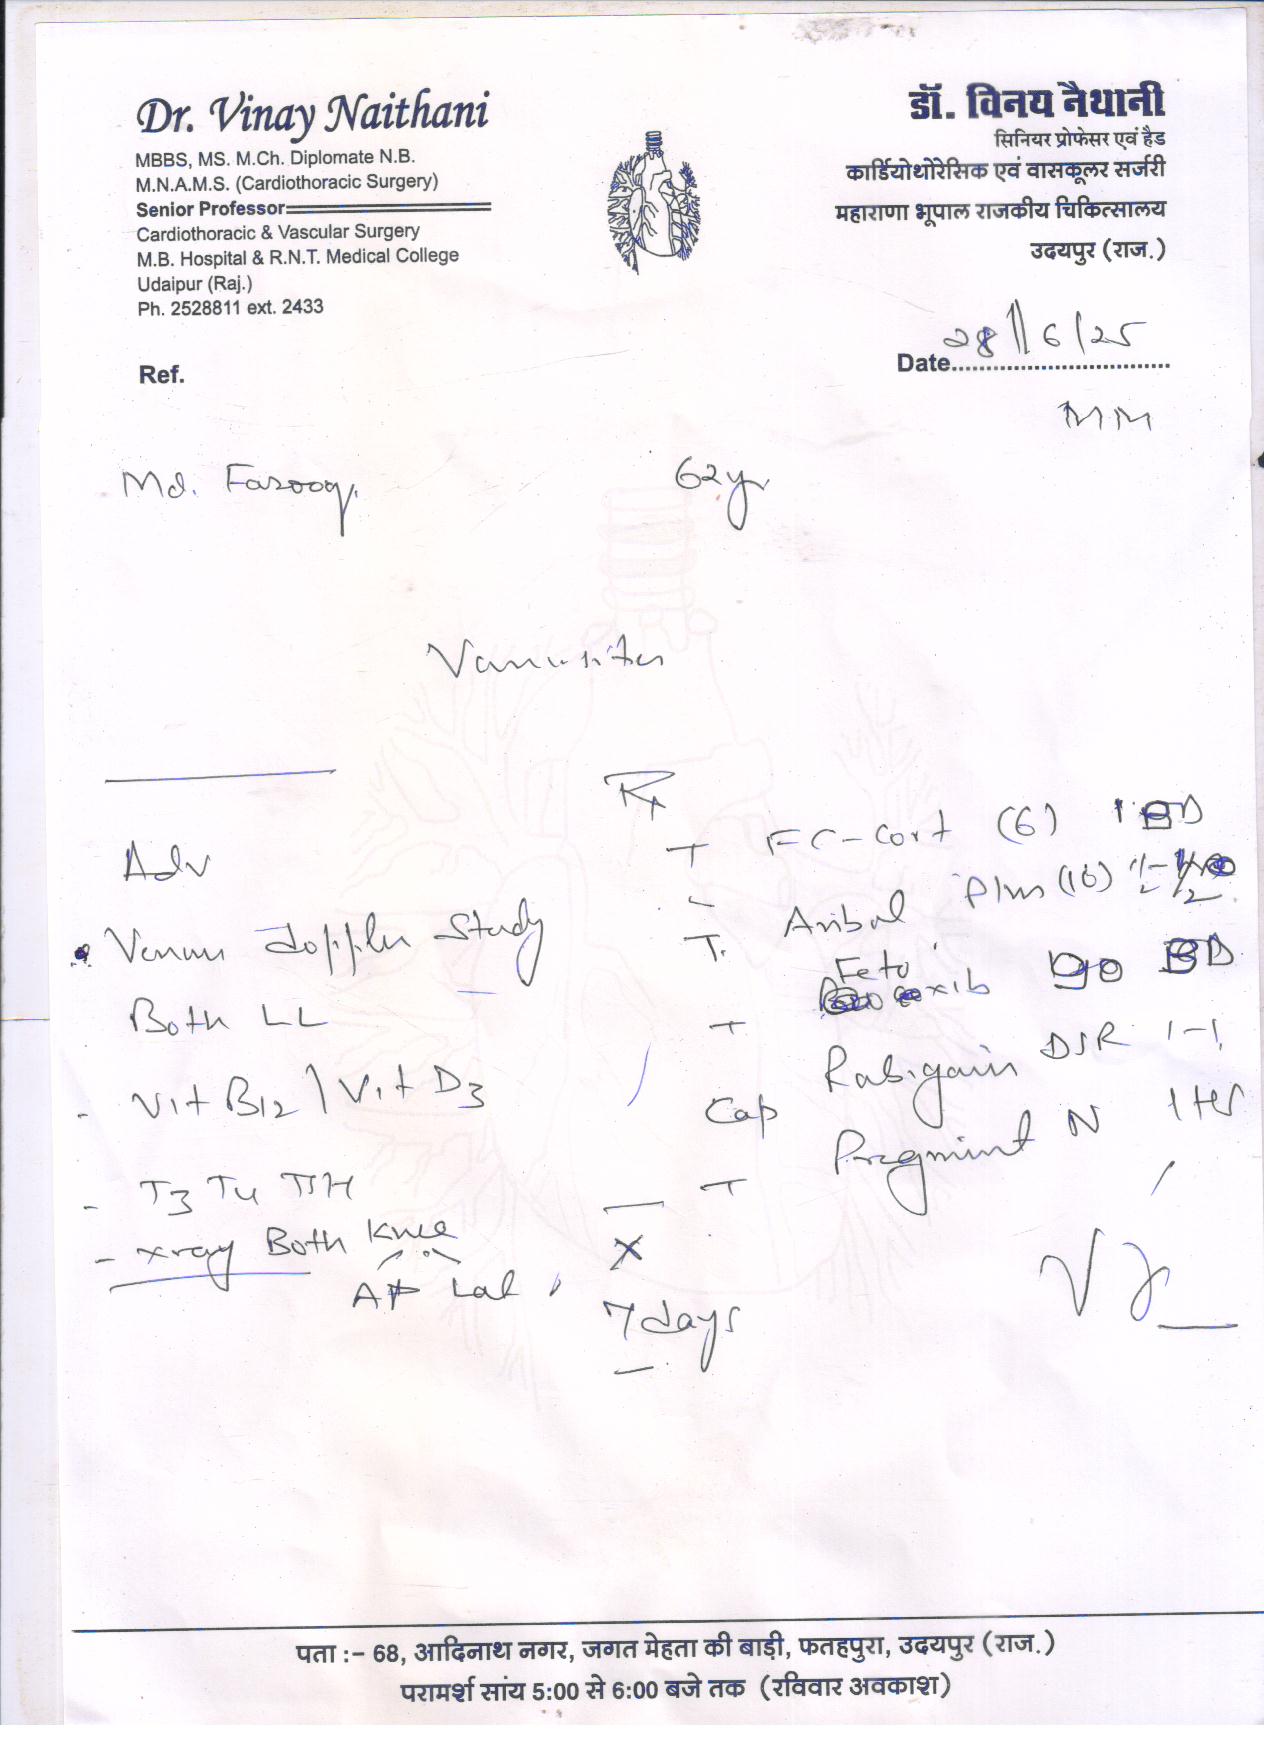 Dr. Vinay Naithani
MBBS, MS. M.Ch. Diplomate N.B.
M.N.A.M.S. (Cardiothoracic Surgery)
Senior Professor
Cardiothoracic & Vascular Surgery
M.B. Hospital & R.N.T. Medical College
Udaipur (Raj.)
Ph. 2528811 ext. 2433
डॉ. विनय नैथानी
सिनियर प्रोफेसर एवं हैड
कार्डियोथोरेसिक एवं वासकूलर सर्जरी
महाराणा भूपाल राजकीय चिकित्सालय
उदयपुर (राज.)
Ref.
Date 28/6/25
MM
Md. Farooq 62yr
Adv
Venous doppler study
Both LL
- Vit B12 / Vit D3
- T3 T4 TSH
- xray Both Knee
AP Lat
Rx
T FC-Cort (6) 1 BD
Plus (10)
T. Feto xib 90 BD
T Rabigain DSR 1-1
Cap N 1 HS
T
x
7 days
पता :- 68, आदिनाथ नगर, जगत मेहता की बाड़ी, फतहपुरा, उदयपुर (राज.)
परामर्श सांय 5:00 से 6:00 बजे तक (रविवार अवकाश)